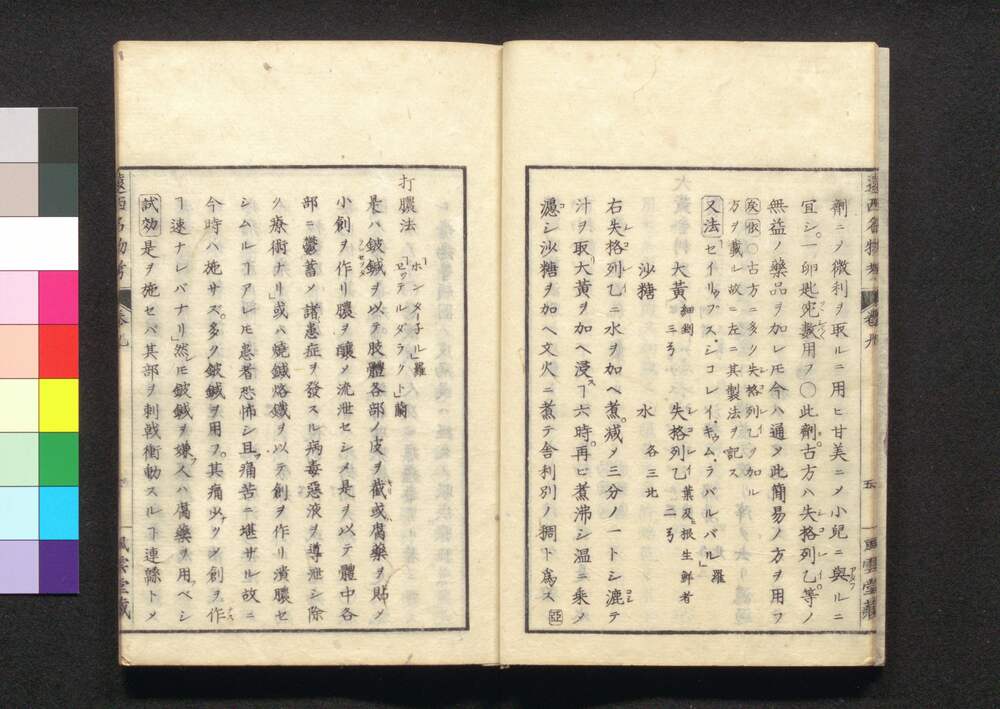 遠西名物考
卷九
五
風雲堂藏
劑ニ〆微利ヲ取ルニ用ヒ甘美ニ〆小兒ニ與ルニ
宜シ一卵匙兜數用フ○此劑古方ハ失格列乙等ノ
無益ノ藥品ヲ加レ𪜈今ハ通〆此簡易ノ方ヲ用フ
○古方ニ多ク失格列乙ヲ加ル
方ヲ載ル故ニ左ニ其製法ヲ記ス
又法 セイリュプス・シコレイ・キュム・ラバルバル 羅
大黄 細剉 三弓 失格列乙 葉及根生鮮者 二弓
沙糖 水 各三
右失格列乙ニ水ヲ加ヘ煮减〆三分ノ一トシ漉テ
汁ヲ取大黄ヲ加ヘ浸ヿ六時再ヒ煮沸シ温ニ乘〆
濾シ沙糖ヲ加ヘ文火ニ煮テ舍利別ノ稠ト爲ス 亞
打膿法 ホンタ子ル 羅
セッテルダラクト 蘭
是ハ鈹鍼ヲ以テ肢體各部ノ皮ヲ截或腐藥ヲ貼〆
小創ヲ作リ膿ヲ釀〆流泄セシメ是ヲ以テ體中各
部ニ鬱蓄〆諸患症ヲ發スル病毒惡液ヲ導泄シ除
ク療術ナリ或ハ燒鍼烙鐵ヲ以テ創ヲ作リ潰膿セ
シムルヿアレ𪜈患者恐怖シ且痛苦ニ堪ザル故ニ
今時ハ施サズ多ク鈹鍼ヲ用フ其痛少ク〆創ヲ作
ヿ速ナレバナリ然𪜈鈹鍼ヲ嫌人ハ腐藥ヲ用ベシ
試効 是ヲ施セバ其部ヲ刺戟衝動スルヿ連緜ト〆
遠西名物考
卷九
風雲堂藏